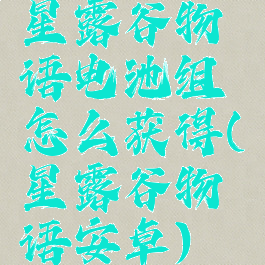 星露谷物
语电池组
怎么获得(
星露谷物
语安卓)